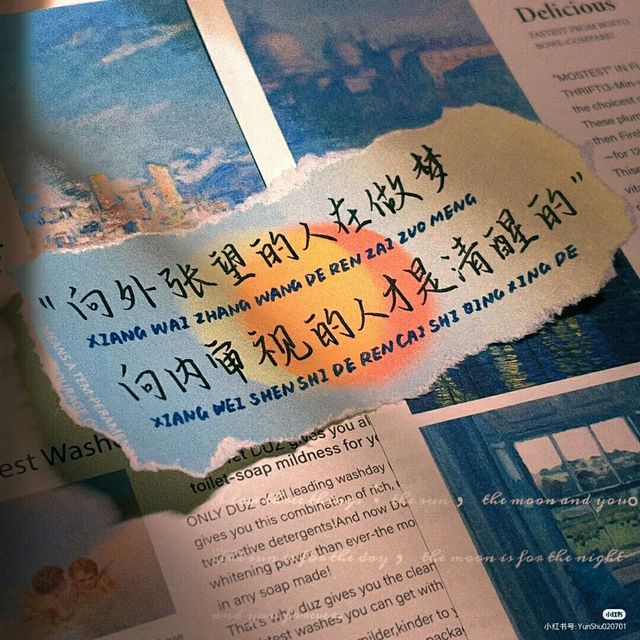 Delicious
FASTEST FROM
BOWL-COMPARE!
"MOSTEST" IN
THRIFT!3-Min
the choicest
These plum
then Fire
—for 12
"向外张望的人在做梦
XIANG WAI ZHANG WANG DE REN ZAI ZUO MENG
向内审视的人才是清醒的"
XIANG WEI SHEN SHI DE REN CAI SHI BING XING DE
MEANS A TEM
est Washe
let DUZ gives you al
toilet-soap mildness for y
ONLY DUZ leading washday
gives you this combination of rich,
active detergents!And now DU
whitening power than ever-the mo
in any soap made!
That's why duz gives you the clean
test washes you can get with
milder,kinder to y
packa
the sun, the moon and you
The sun is for the day, the moon is for the night
小红书
小红书号: YunShu020701